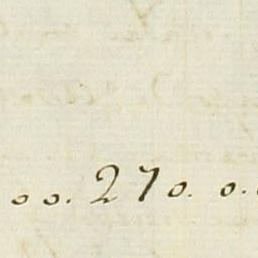 oo. 270. o.